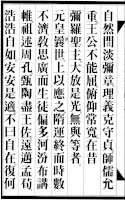 自然間淡彌章理義克守貞師儒允
重王公不能屈俯仰常寬在昔
彌羅聖主大放是光無與等者
元皇曩世丄以應之隋運終而時數
不濟敎思廣而生徒偏多河汾布講
帷祖述周孔甄陶盡王佐遠適孟荀
浩浩自如安安是適不曰自在復何